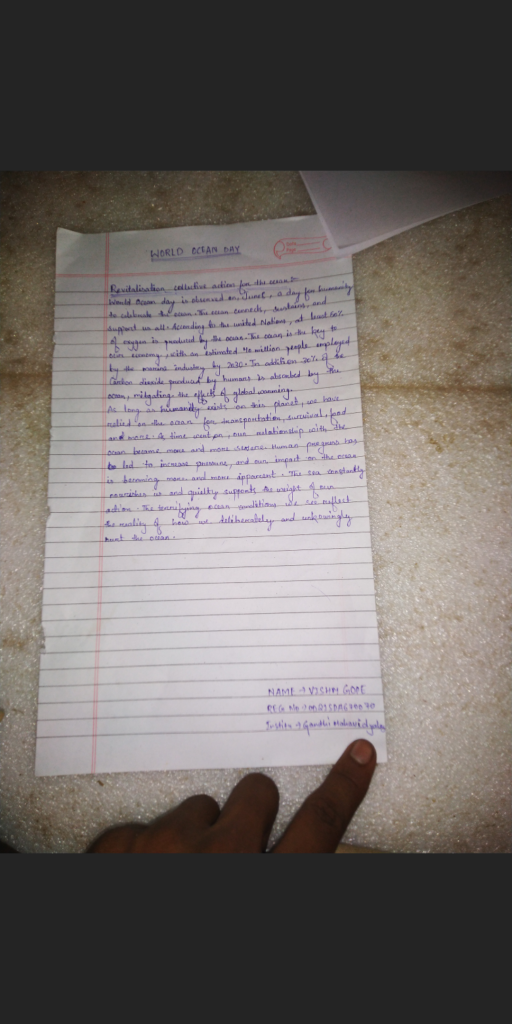 WORLD OCEAN DAY
Date
Page
Revitalisation collective action for the ocean :-
World Ocean day is observed on June 8, a day for humanity
to celebrate the ocean. The ocean connects, sustains, and
support us all. According to the united Nations, at least 50%
of oxygen is produced by the ocean. The ocean is the key to
our economy, with an estimated 40 million people employed
by the marine industry by 2030. In addition 30% of the
Carbon dioxide produced by humans is absorbed by the
ocean, mitigating the effects of global warming.
As long as humanity exists on this planet, we have
relied on the ocean for transportation, survival, food
and more. As time went on, our relationship with the
ocean became more and more severe. Human progress has
led to increase pressure, and our impact on the ocean
is becoming more and more apparent. The sea constantly
nourishes us and quietly supports the weight of our
action. The terrifying ocean conditions we see reflect
the reality of how we deliberately and unknowingly
hurt the ocean.
NAME → VISHM GOPE
REG No →
Institu → Gandhi Mahavidyalay